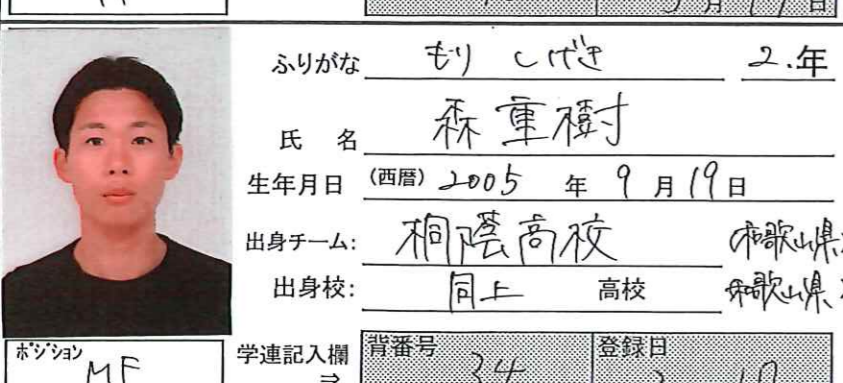 月 日
ふりがな もり しげき 2.年
氏 名 森 重樹
生年月日 (西暦) 2005 年 9 月 19 日
出身チーム: 桐蔭高校 和歌山県
出身校: 同上 高校 和歌山県
ポジション MF 学連記入欄 背番号 34 登録日
⇒